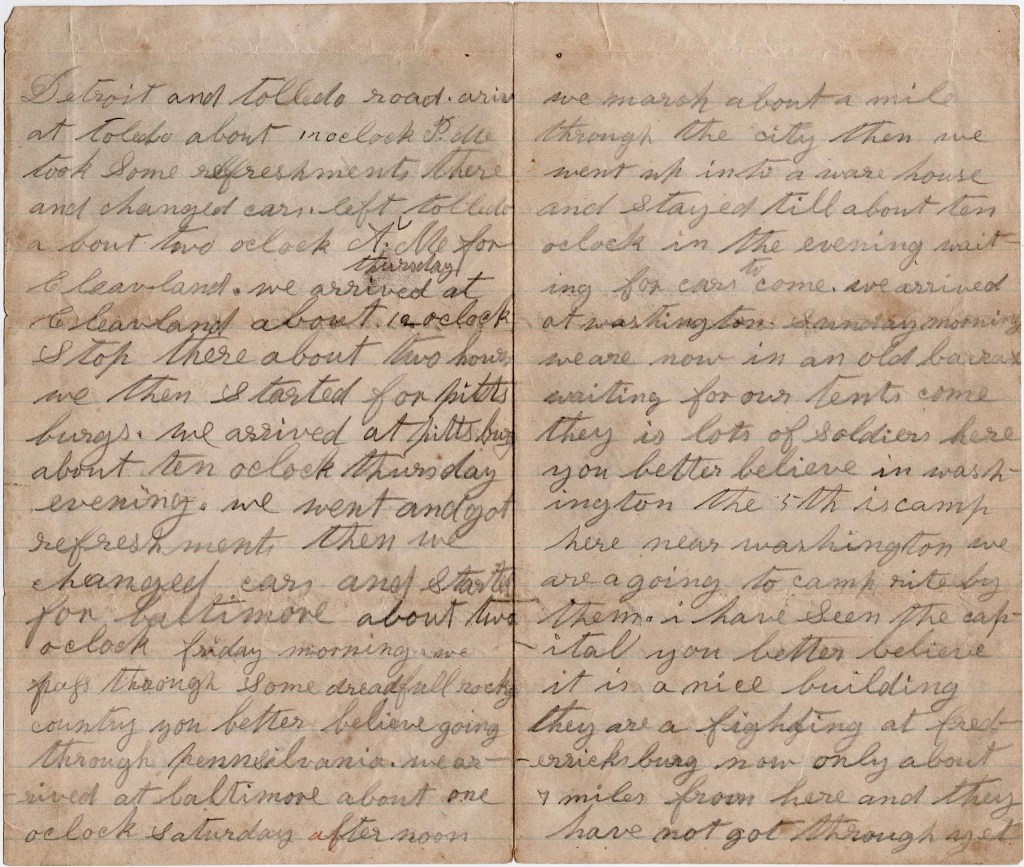 Detroit and tolledo road. ariv
at toledo about 12 oclock P. Me
took Some refreshments there
and changed cars. left tolledo
a bout two oclock A. Me for
thursday
Cleavland. we arrived at
Cleavland about. 12 oclock
Stop there about two hours
we then Started for pitts
burgs. we arrived at pitts.burg
about ten oclock thursday
evening. we went and got
refreshments then we
changed cars and started
for baltimore about two
oclock friday morning. we
pass through Some dreadfull rocky
country you better believe going
through pennsilvania. we ar-
rived at baltimore about one
oclock Saturday after noon
we march about a mile
through the city then we
went up into a ware house
and Stayed till about ten
oclock in the evening wait-
ing for cars to come. we arrived
at washington. Sunday morning
we are now in an old barrax
waiting for our tents come
they is lots of Soldiers here
you better believe in wash-
ington the 5th is camp
here near washington we
are a going to camp rite by
them. i have Seen the cap-
ital you better believe
it is a nice building
they are a fighting at fred-
erricksburg now only about
7 miles from here and they
have not got through a yet